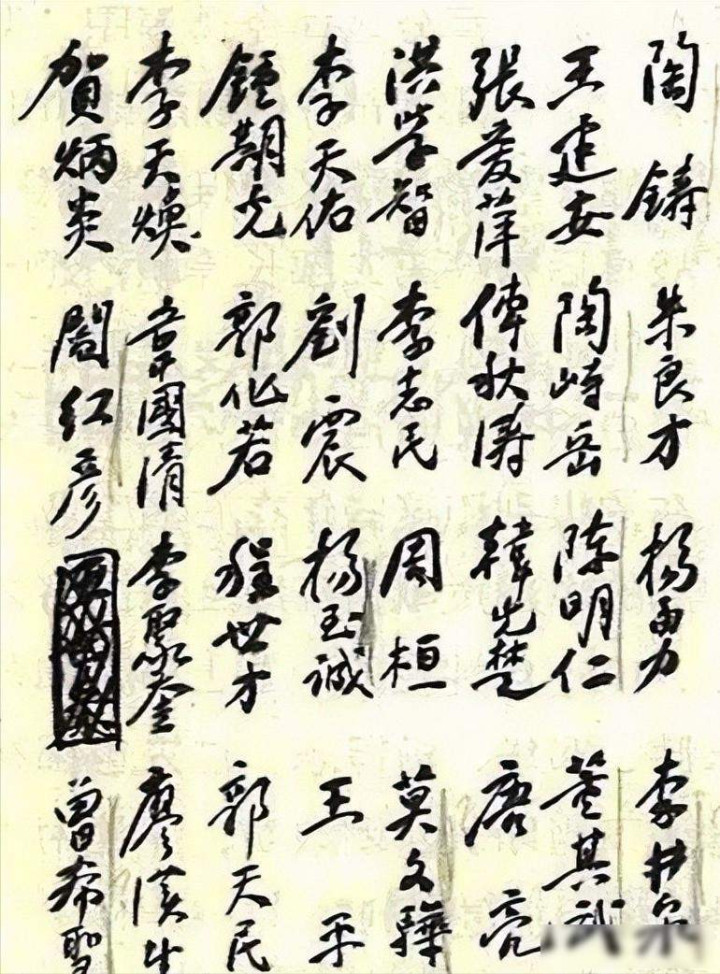 陶鑄 朱良才 楊勇 李井泉
王建安 陶峙岳 陈明仁 董其武
張爱萍 傅秋濤 韓先楚 唐亮
洪学智 李志民 周桓 莫文驊
李天佑 劉震 楊至诚 王平
鍾期光 郭化若 程世才 郭天民
李天焕 韋國清 李聚奎 廖漢生
賀炳炎 閻红彦 曾希聖